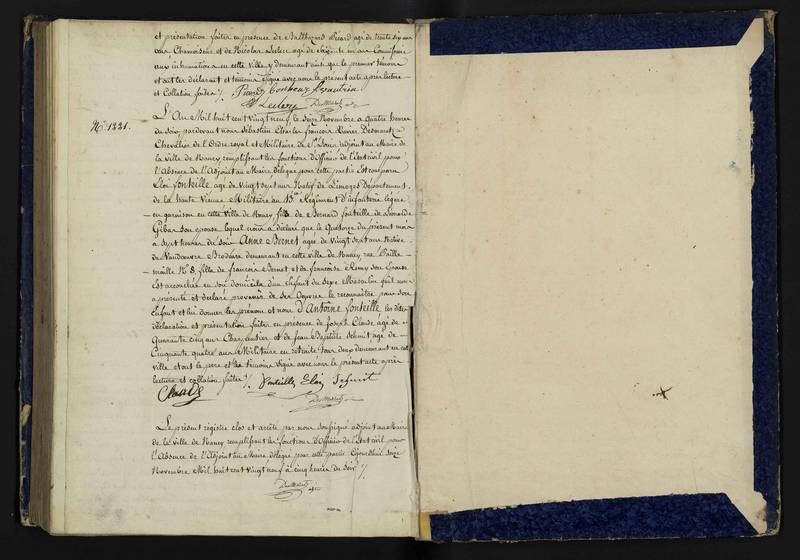 et présentation faites en présence de Balthazard Picard agé de trente six ans
Chamoiseur et de Nicolas Leclerc agé de soixante un ans Commissaire
aux inhumations en cette ville y demeurant ainsi que le premier témoin
et ont les déclarant et témoins signé avec nous le présent acte après lecture
et Collation faites ./.
Leclerc
N° 1221.
L'An Mil huit cent vingt neuf le Seize Novembre a quatre heures
du Soir, pardevant nous Sébastien Charles françois Xavier Desmarets
Chevalier de l'Ordre royal et Militaire de St Louis adjoint au Maire de
la ville de Nancy remplissant les fonctions d'Officier de l'Etat civil pour
l'Absence de l'Adjoint au Maire délégué pour cette partie Est comparu
Eloi fonteille, agé de vingt Sept ans Natif de Limoges Département
de la haute Vienne, Militaire au Régiment d'infanterie légère
en garnison en cette Ville de Nancy fils de Bernard fonteille de Léonarde
Gibar Son épouse, lequel nous a déclaré que le Quatorze du présent mois
a Sept heures du Soir Anne Bernet agée de vingt Sept ans Native
de Vandoeuvre Brodeuse demeurant en cette ville de Nancy rue Paille
maille N° 8, fille de francois Bernet et de francoise Remy Son Epouse
Est accouchée en Son domicile d'un Enfant du Sexe Masculin qu'il nous
a présenté et déclaré provenir de Ses Oeuvres le reconnaître pour Son
Enfant et lui donner les prénom et nom d'Antoine fonteille les dites
déclaration et présentation faites en présence de Joseph Claude agé de
Quarante cinq ans Charpentier et de Jean Baptiste Schmit agé de
Cinquante quatre ans Militaire en retraite tous deux demeurant en cette
ville et ont le pere et les témoins Signé avec nous le présent acte après
lecture et collation faites ./. fonteille Eloi Schmit
Claude
Desmarets
Le présent registre clos et arrêté par nous Soussigné adjoint au Maire
de la ville de Nancy remplissant les fonctions d'Officier de l'Etat civil pour
l'Absence de l'Adjoint au Maire délégué pour cette partie Cejourd'hui Seize
Novembre Mil huit cent vingt neuf à cinq heures du Soir ./.
Desmarets